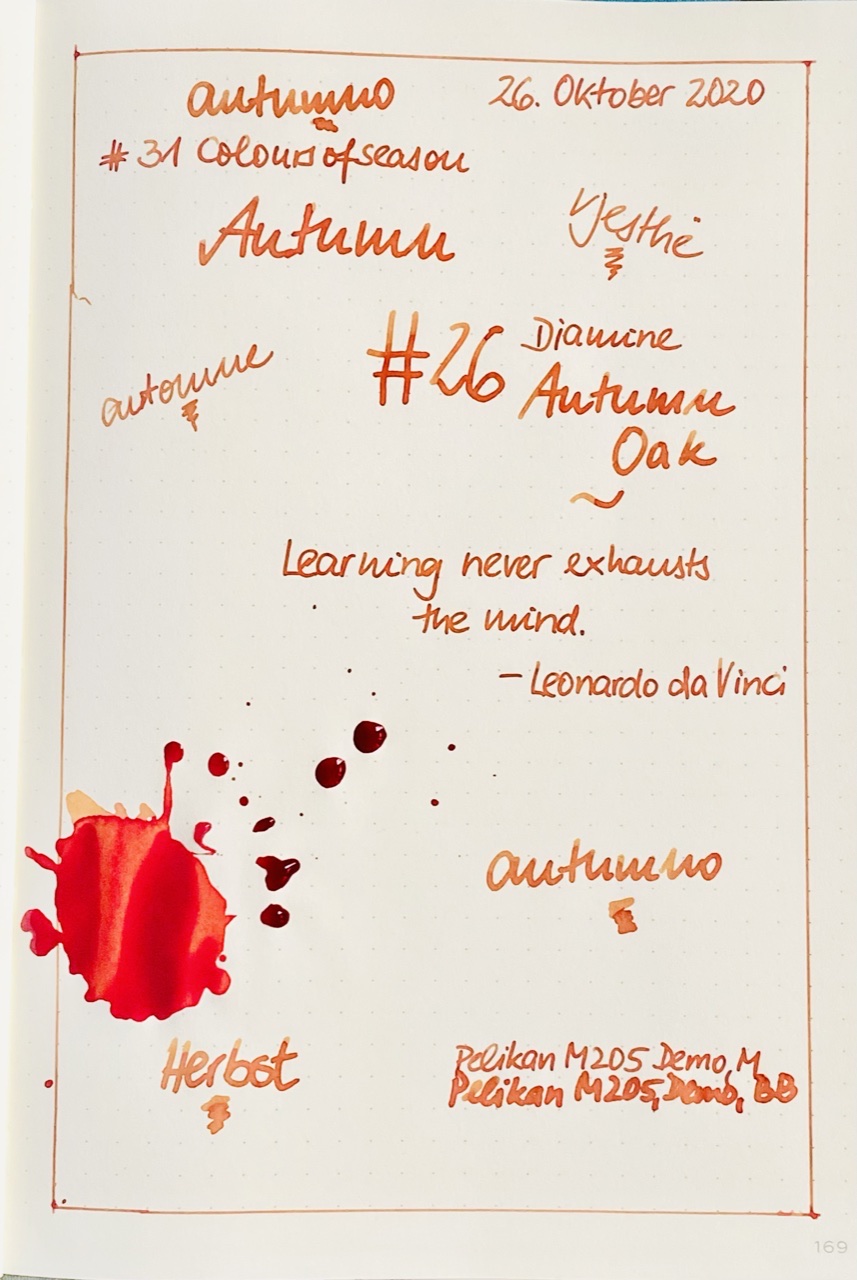 autunno
26. Oktober 2020
#31 Coloursofseason
Autumn
Vjeshtë
automne
#26 Diamine
Autumn
Oak
Learning never exhausts
the mind.
– Leonardo da Vinci
autunno
Herbst
Pelikan M205 Demo, M
Pelikan M205, Demo, BB
169